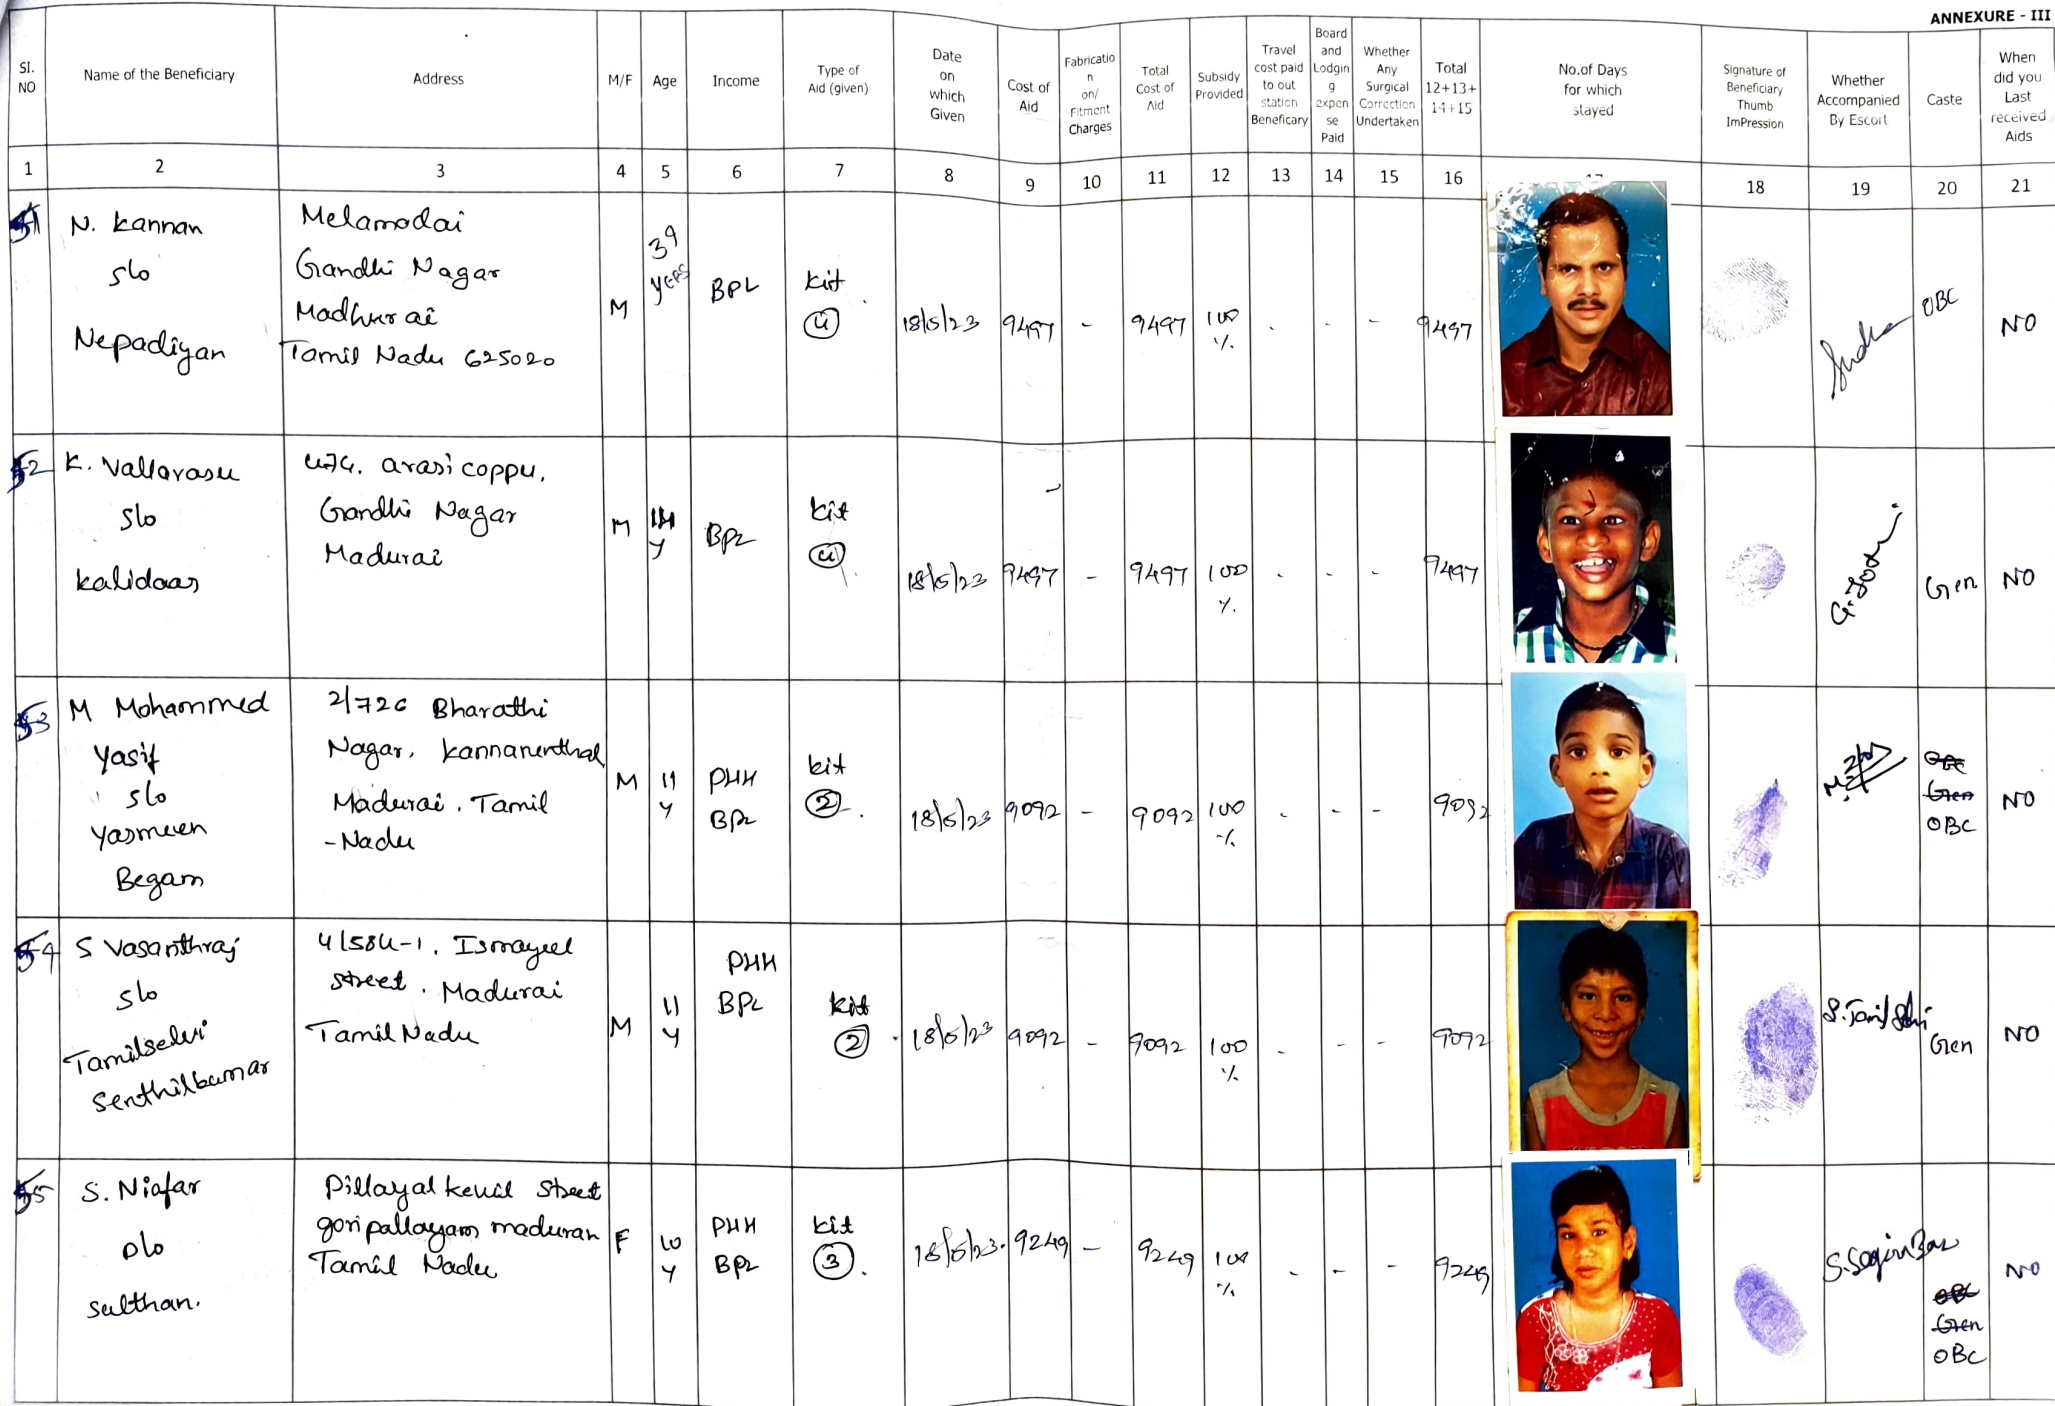 ANNEXURE - III
SI. NO
Name of the Beneficiary
Address
M/F
Age
Income
Type of
Aid (given)
Date
on
which
Given
Cost of
Aid
Fabricatio
n
on/
Fitment
Charges
Total
Cost of
Aid
Subsidy
Provided
Travel
cost paid
to out
station
Beneficary
Board
and
Lodgin
g
expen
se
Paid
Whether
Any
Surgical
Correction
Undertaken
Total
12+13+
14+15
No.of Days
for which
stayed
Signature of
Beneficiary
Thumb
ImPression
Whether
Accompanied
By Escort
Caste
When
did you
Last
received
Aids
1 2 3 4 5 6 7 8 9 10 11 12 13 14 15 16 18 19 20 21
51
N. Kannan
S/o
Nepadiyan
Melamadai
Gandhi Nagar
Madhurai
Tamil Nadu 625020
M
39
years
BPL
kit
4
18/5/23
9497
-
9497
100
%
-
-
-
9497
OBC
NO
52
K. Vallarasu
S/o
kalidaas
474. arasi coppu,
Gandhi Nagar
Madurai
M
14
y
BPL
kit
4
18/5/23
9497
-
9497
100
%
-
-
-
9497
Gen
NO
53
M Mohammed
Yasif
S/o
Yasmeen
Begam
Bharathi
Nagar, kannanenthal
Madurai. Tamil
-Nadu
M
11
y
PHH
BPL
kit
2
18/5/23
9092
-
9092
100
%
-
-
-
9092
Gen
OBC
NO
54
S Vasanthraj
S/o
Tamilselvi
Senthilkumar
4/584-1, Ismayeel
street. Madurai
Tamil Nadu
M
11
y
PHH
BPL
kit
2
18/5/23
9092
-
9092
100
%
-
-
-
9092
Gen
NO
55
S. Niafar
D/o
Sulthan.
Pillayal kevil Street
goripallayam maduran
Tamil Nadu
F
10
y
PHH
BPL
kit
3
18/5/23.
9249
-
9249
100
%
-
-
-
9249
OBC
Gen
OBC
NO